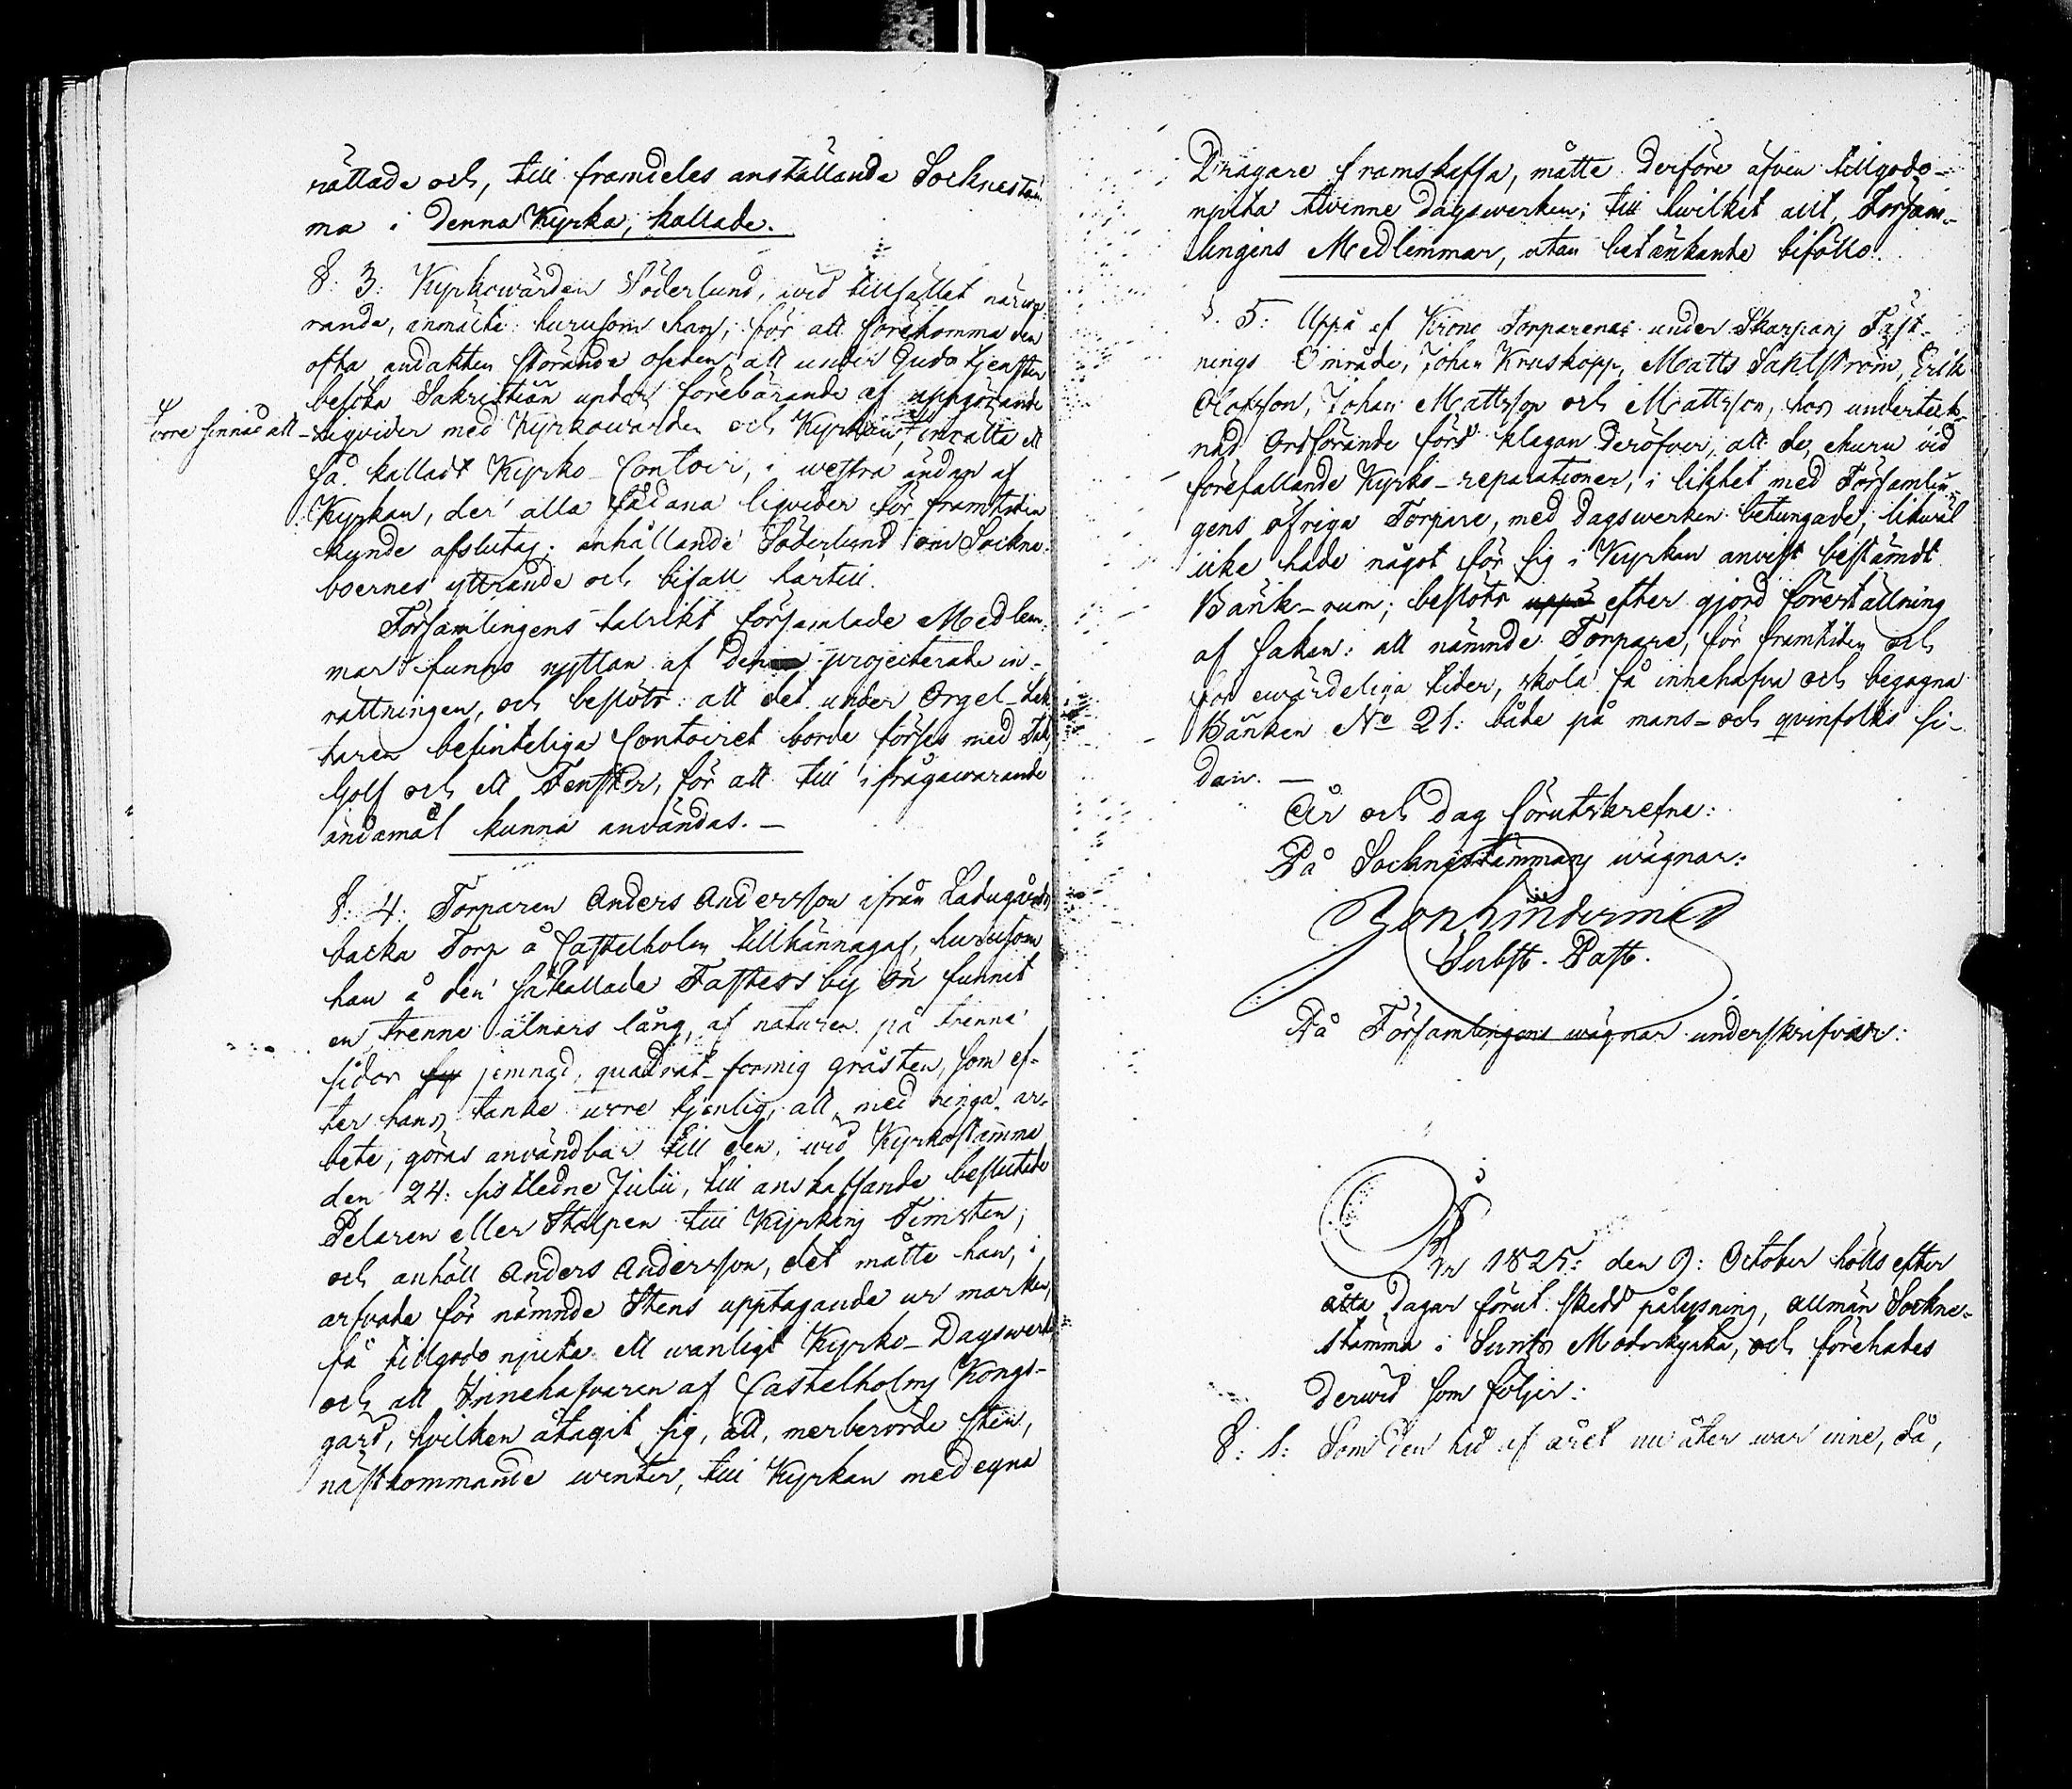 rättade och, till framdeles anställande Socknestäm-
ma i denna Kyrka, kallade.
§: 3: Kyrkowärden Söderlund, wid tillfället närwa-
rande, anmälte: hurusom han, för att förekomma den
ofta andakten störande oseden, att under Gudstjensten
besöka Sakristian under förebärande af uppgörande
liqvider med Kyrkowärden och Kyrkan, inrätta ett
wore sinnad att
så kalladt Kyrko-Contoir, i westra ändan af
Kyrkan, der alla sådana liqvider för framtiden
kunde afslutas; anhållande Söderlund om Sockne-
boernes yttrande och bifall härtill.
Församlingens talrikt församlade Medlem-
mar funno nyttan af den projecterade in-
rättningen, och beslöts: att det under Orgel-läk-
taren befinteliga Contoiret borde förses med Tak,
Golf och ett Fenster, för att till ifrågawarande
ändamål kunna användas. —
§: 4: Torparen Anders Andersson ifrån Ladugårds
backa Torp å Castelholm tillkännagaf, hurusom
han å den så kallade Fastess by Ön funnit
en trenne alnars lång, af naturen på trenne
sidor jemnad, quadrat-formig gråsten, som ef-
ter hans tanke wore tjenlig, att med ringa ar-
bete, göras användbar till den, wid Kyrkostämma
den 24: sistledne Julii, till anskaffande beslutade
Pelaren eller Stolpen till Kyrkans Timsten;
och anhöll Anders Andersson, det måtte han, i
arfvode för nämnde Stens upptagande ur marken,
få tillgodo njuta ett wanligt Kyrko-Dagswerke
och att Innehafvaren af Castelholms Kongs-
gård, hvilken åtagit sig, att, merberörde sten,
nästkommande winter, till Kyrkan med egna
Dragare framskaffa, måtte derföre äfven tillgodo-
njuta twenne Dagswerken; till hwilket allt, Försam-
lingens Medlemmar, utan betänkande biföllo.
§. 5: Uppå af Krono Torparenas under Skarpans Fäst-
nings Område, Johan Kruskopp, Matts Sahlström, Erik
Olofsson, Johan Mattsson och Mattsson, hos underteck-
nad Ordförande förd klagan deröfver, att de, ehuru vid
förefallande Kyrko-reparationer, i likhet med Församlin-
gens öfriga Torpare, med dagswerken betungade, likwäl
icke hade något för sig i Kyrkan anvist bestämdt
Bänk-rum; beslöts uppå efter gjord föreställning
af saken: att nämnde Torpare, för framtiden och
för ewärdeliga tider, skola få innehafva och begagna
Bänken No 21: både på mans- och qvinfolks si-
dan. —
År och dag förutskrefne:
På Socknestämmans wägnar:
Subst. Past.
På Församlingens wägnar underskrifvas:
År 1825: den 9: October hölls efter
åtta dagar förut skedd pålysning, allmän Sockne-
stämma i Sunds Moderkyrka, och förehades
derwid som följer:
§: 1: Som den tid af året nu åter war inne, då,